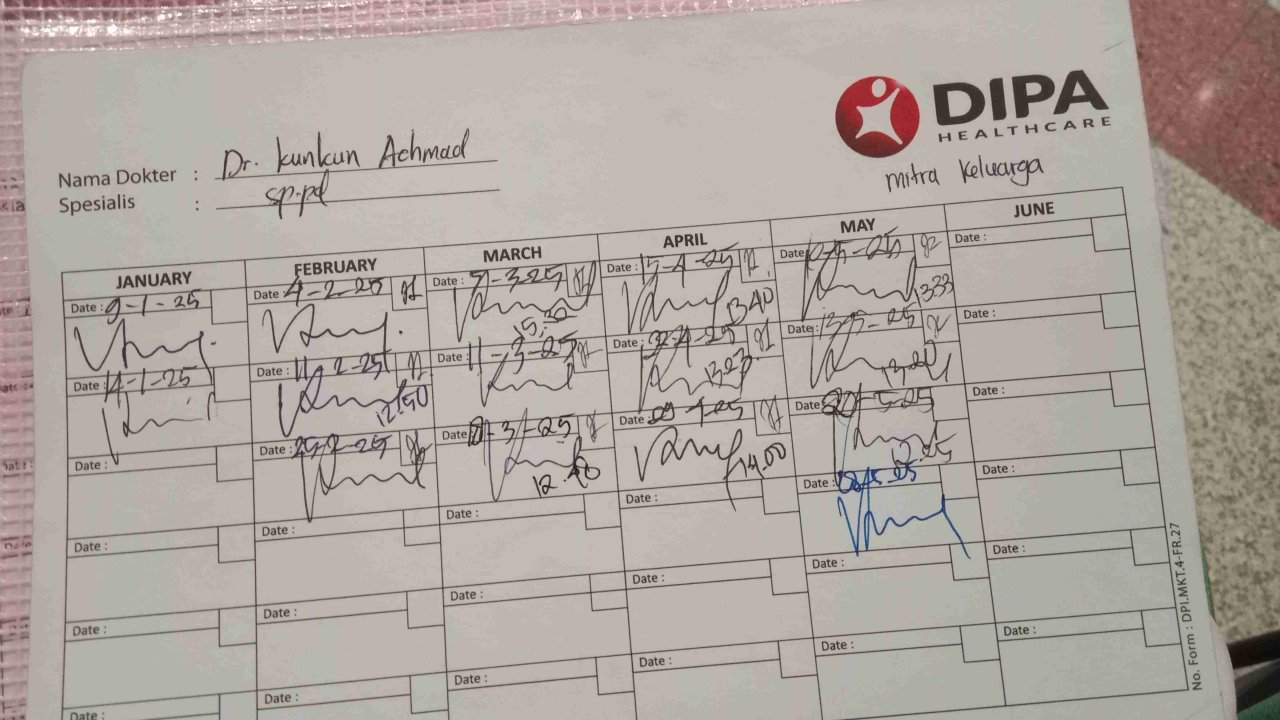 DIPA
HEALTHCARE
mitra keluarga
Nama Dokter : Dr. kunkun Achmad
Spesialis : sp.pd
JANUARY FEBRUARY MARCH APRIL MAY JUNE
Date : 9-1-25 Date : 4-2-25 Date : 7-3-25 Date : 15-4-25 Date Date :
15.30 1340 1333
Date : 14-1-25 Date : 11-2-25 Date : 11-3-25 Date : 22-4-25 Date : 13-5-25 Date :
12.50 1323 13.20
Date : Date : 25-2-25 Date : Date : 29-4-25 Date : 20-5-25 Date :
12.25 14.00
Date : Date : Date : Date : Date : Date :
Date : Date : Date : Date : Date : Date :
Date : Date : Date : Date : Date : Date :
No. Form : DPI.MKT.4-FR.27